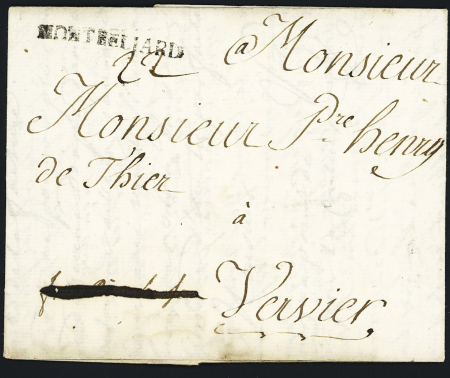 MONTBELIARD
22 a Monsieur
Monsieur Pre henry
de Thier
à
Vervier